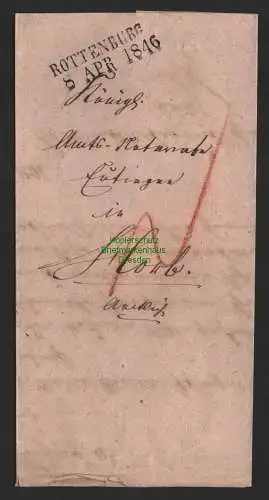 ROTTENBURG
8 APR 1846
Königl.
Amts-Notariate
Eutingen
in
Horb.
Kopierschutz
Briefmarkenhaus
Dresden